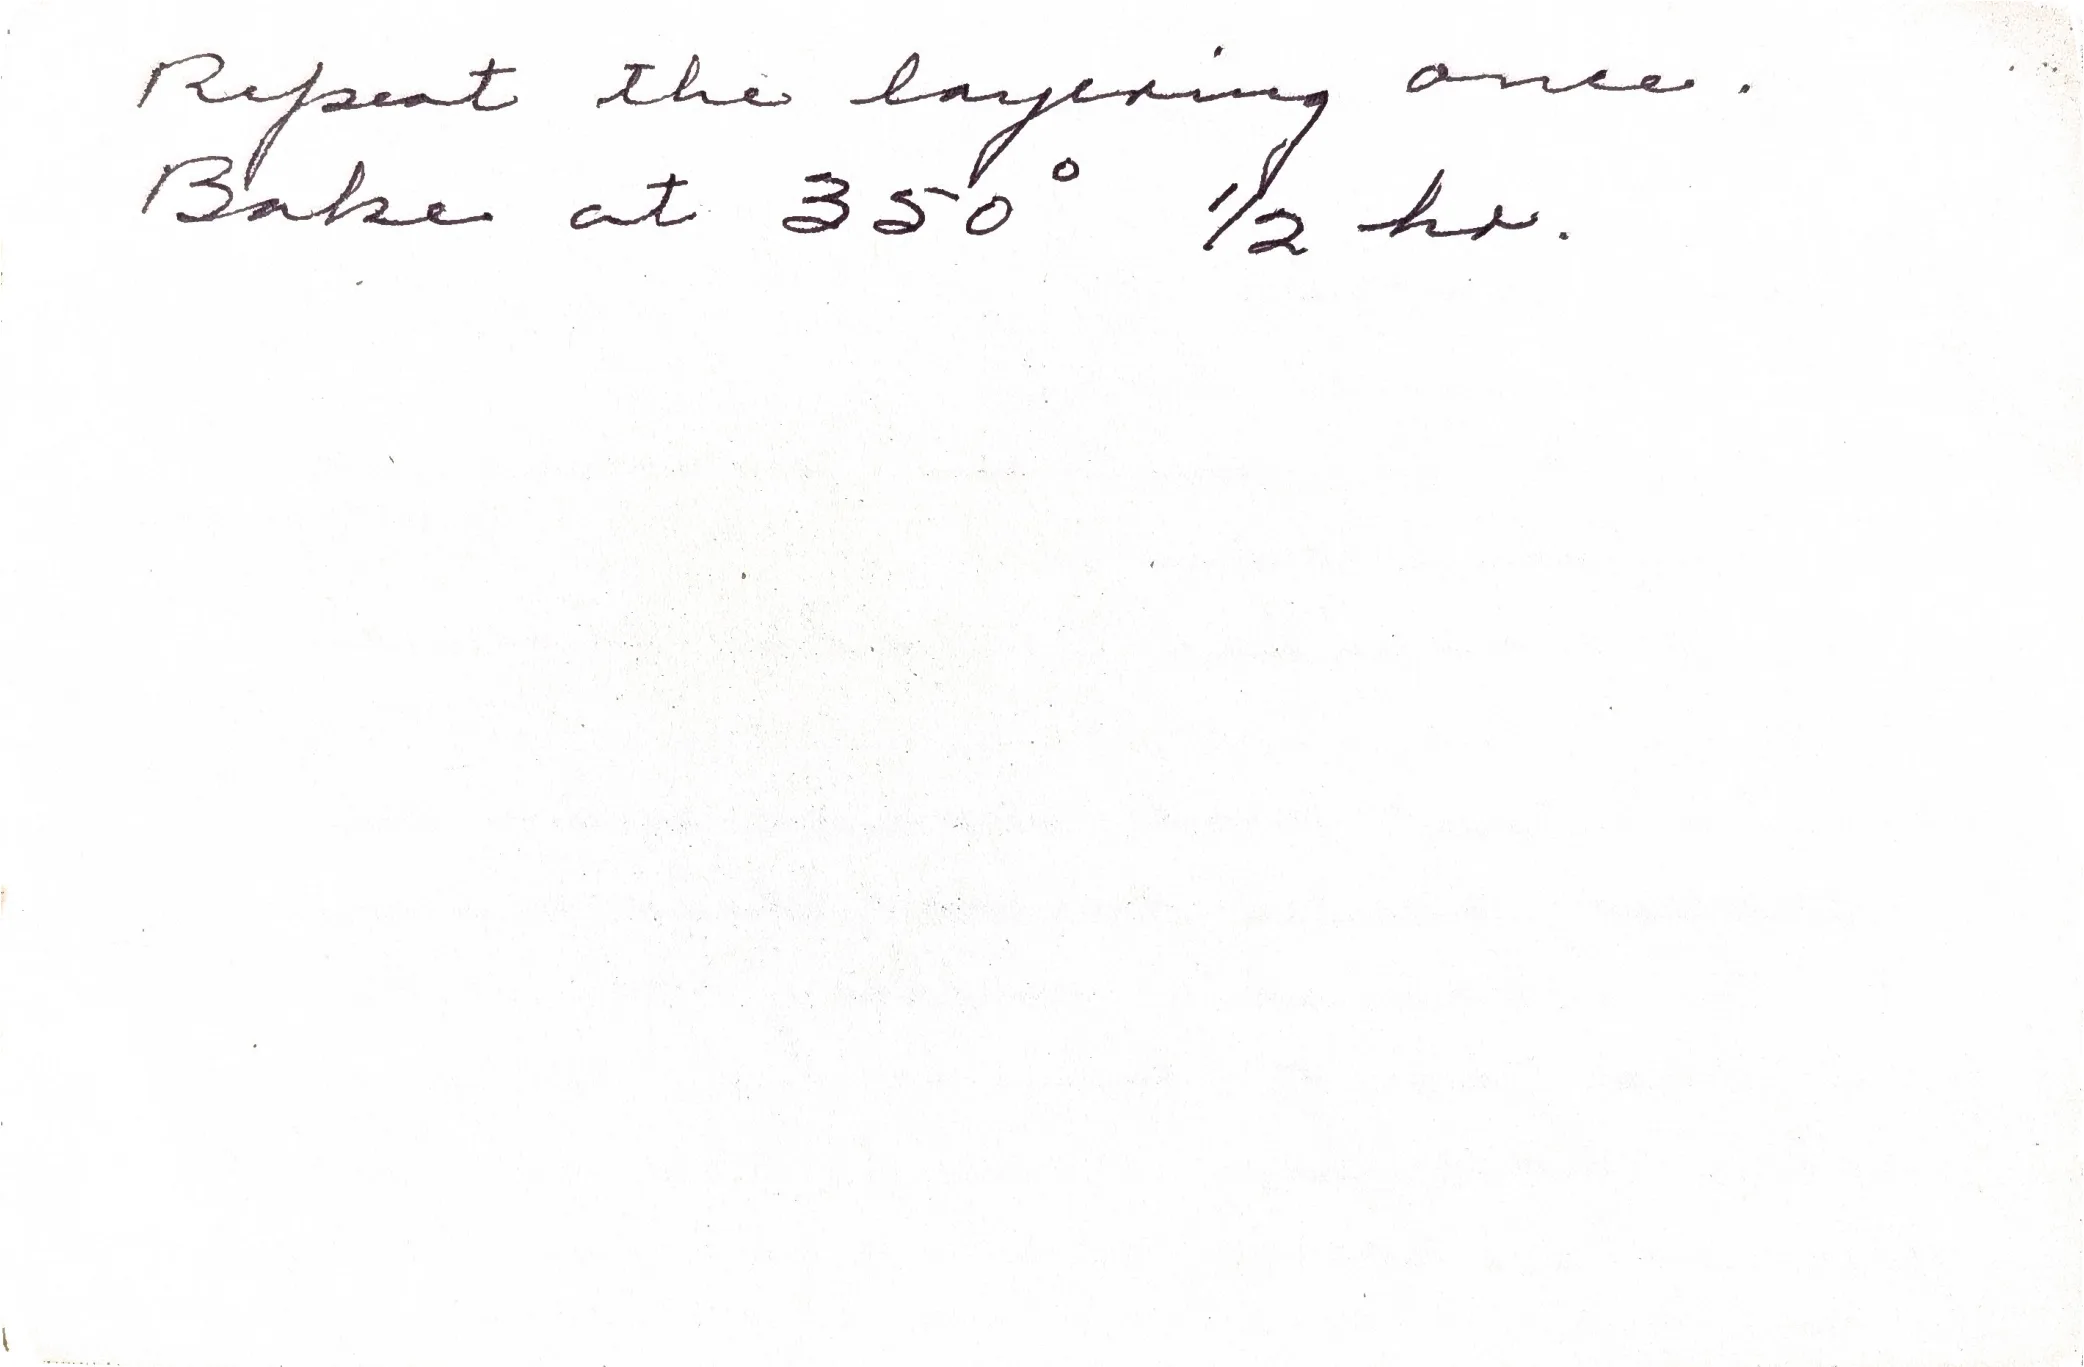 Repeat the layering once.
Bake at 350° 1/2 hr.